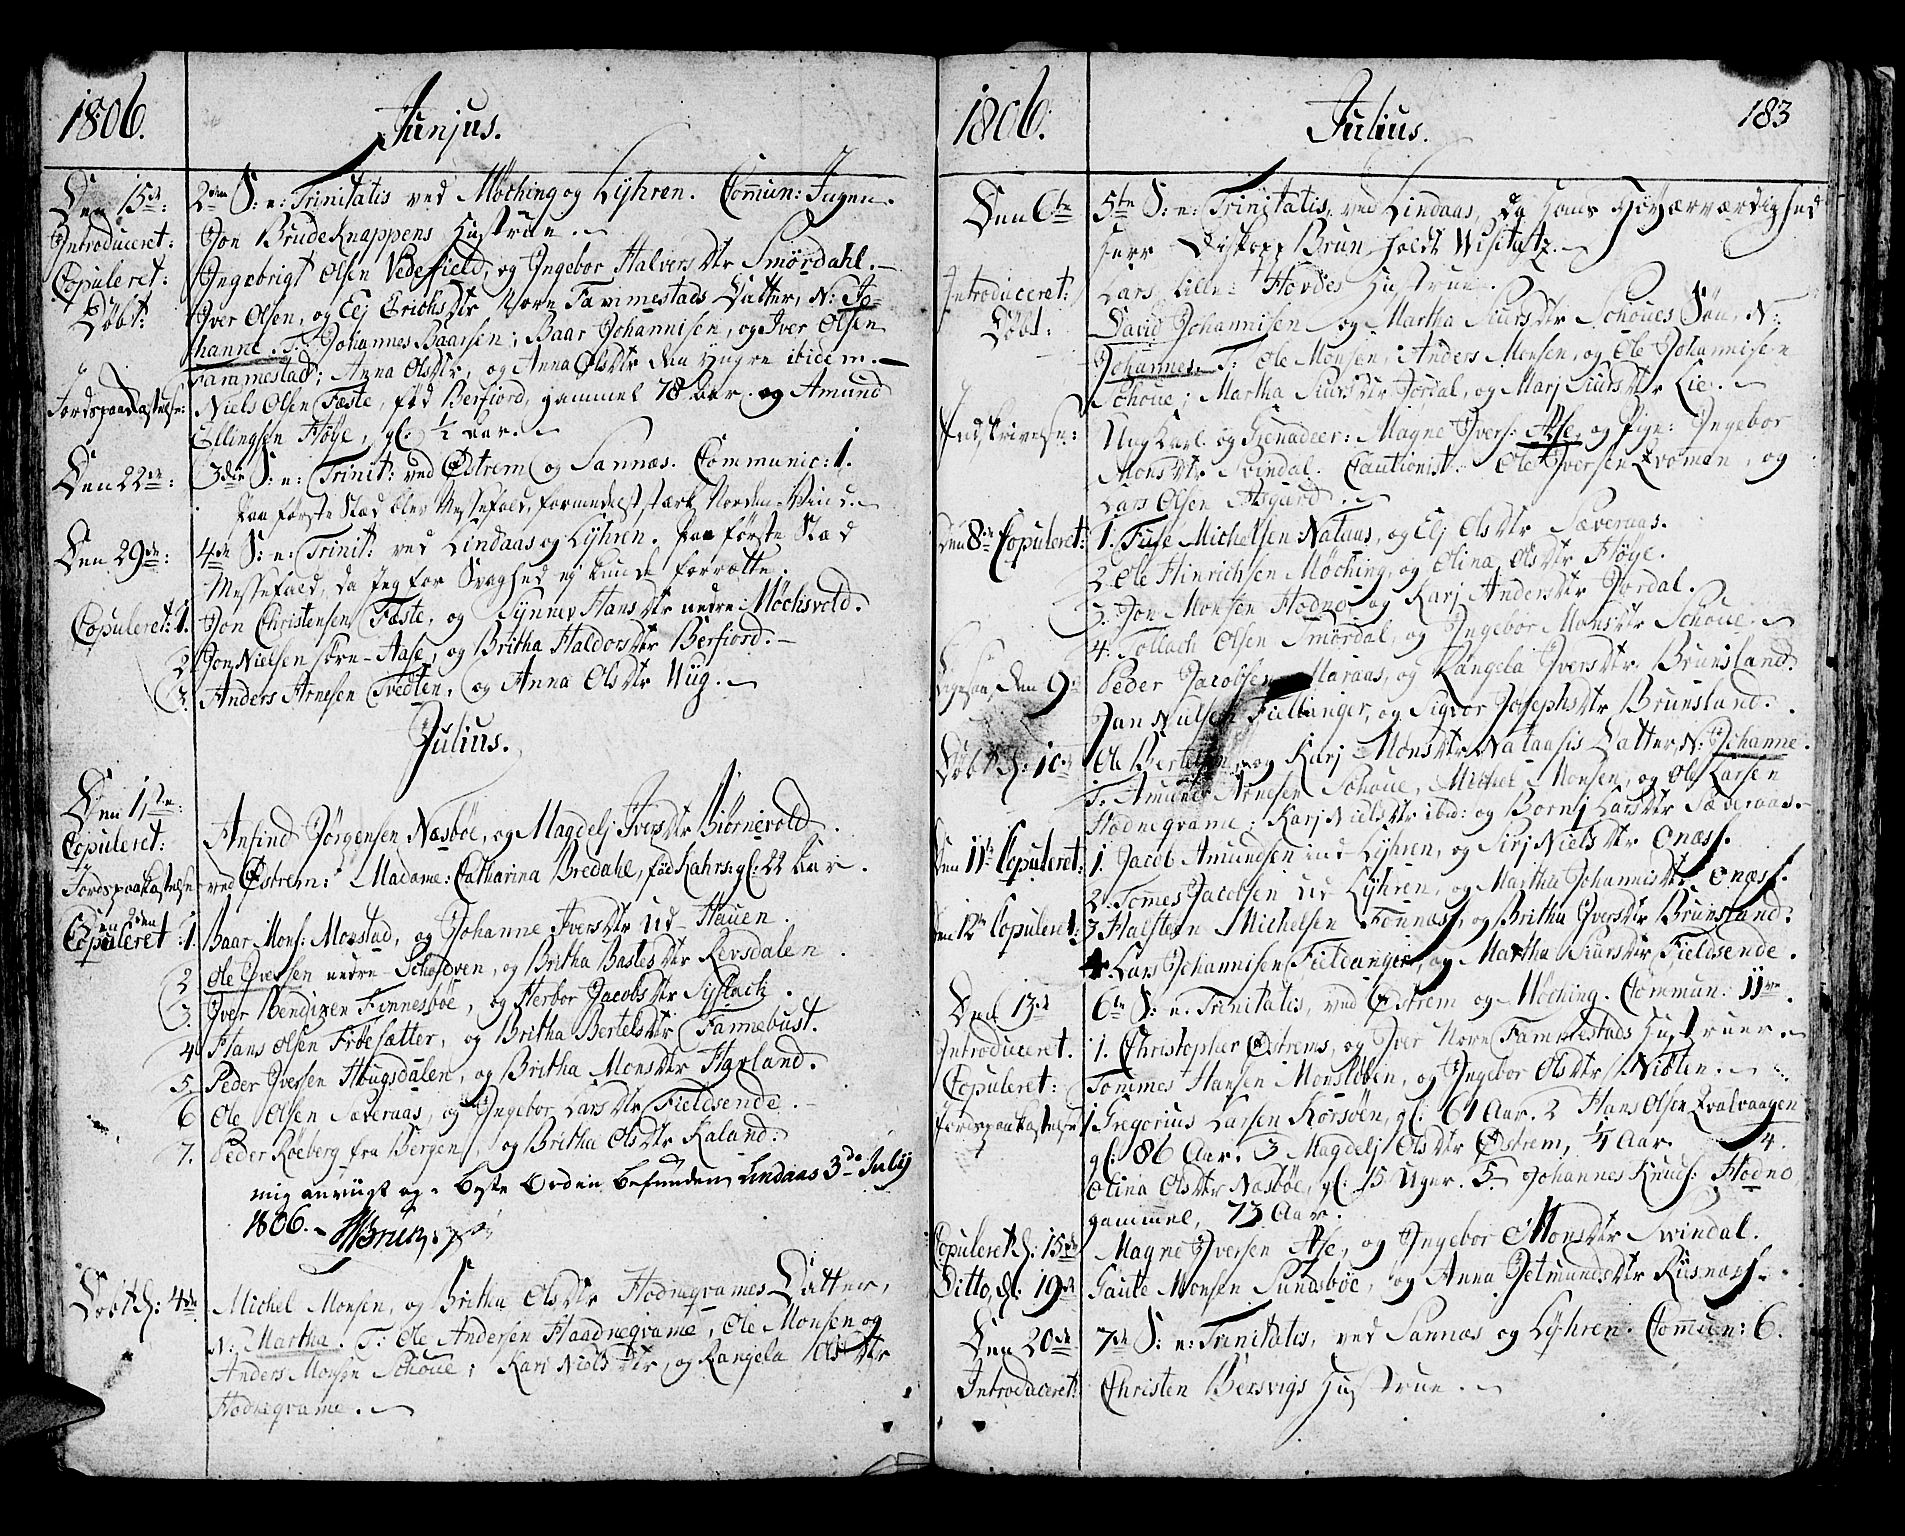 1806.
Junjus.
Den 15de: 2den S: e: Trinitatis ved Møching og Lyhren. Com̅un: Ingen.
Introduceret: Jon Brudeknappens Hustrue.
Copuleret: Ingebrigt Olsen Vedefield, og Ingebor Halversdtr Smørdahl.
Døbt: Iver Olsen, og Elj Erichsdtr Norn Fam̅estads Datter, N: Jo-
hanne. T: Johannes Baarsen; Baar Johannisen, og Iver Olsen
Fammestad; Anna Olsdtr, og Anna Olsdtr den yngre ibidem.
Jordspaakastelse: Niels Olsen Fæste, fød Berfiord, gammel 78 aar. og Amund
Ellingsen Høye, gl: 1/2 aar.
Den 22de: 3die S: e: Trinit: ved Østrem og Sannæs. Communic: 1.
Paa første Stæd blev Messefald, formedelst stærk Norden-Vind.
Den 29de: 4de S: e: Trinit: ved Lindaas og Lyhren. Paa første Stæd
Messefald, da jeg for Svaghed ej kunde forrætte.
Copuleret: 1. Jon Christensen Fæste, og Synnev Hansdtr nedre Mochsvold.
2. Jon Nielsen Aase, og Britha Haldorsdtr Berfiord.
3. Anders Arnesen Tvedten, og Anna Olsdtr Uug.
Julius.
Den 1ste:
Copuleret: Anfind Jørgensen Næsbøe, og Magdelj Iversdtr Biørnevold.
Jordspaakastelse ved Østrem: Madame: Catharina Bredahl, fød Kahrs: gl: 22 Aar.
Den 2den
Copuleret: 1. Baar Mons: Monstad, og Johanne Iversdtr Ud-Hauen.
2. Ole Iversen nedre-Schodven, og Britha Bastesdtr Revsdalen.
3. Iver Bendixen Finnesbøe, og Herbor Jacobsdtr
4. Hans Olsen og Britha Bertelsdtr Fannebust.
5. Peder Iversen Hougsdalen, og Britha Monsdtr Havland.
6. Ole Olsen Sæveraas, og Ingebor Larsdtr Fieldsende.
7. Peder Røeberg fra Bergen, og Britha Olsdtr Kaland.
mig anviist og i beste Orden befunden Lindaas 3de July
1806. Brun
Døbt d: 4de Michel Monsen, og Britha Olsdtr Hodneqvames Datter,
N: Martha. T: Ole Andersen Haadneqvame, Ole Monsen og
Anders Monsen Schoue; Kari Nielsdtr, og Rangela Olsdtr
Hodneqvame.
1806.
Julius.
183
Den 6te 5te S: e: Trinitatis, ved Lindaas, da Hans Høyærværdighed
Herr Biskopp Brun holdt Visitatz.
Introduceret: Lars Lille-Hovdes Hustrue.
Døbt: David Johannisen og Martha Siursdtr Schoues Søn, N:
Johannes. T: Ole Monsen, Anders Monsen, og Ole Johannisen
Schoue; Martha Siursdtr Jordal, og Marj Siursdtr Lie.
Indskrivelse: Ungkarl og Grenadeer: Magne Ivers: Aase, og Pige: Ingebor
Monsdtr Svindal. Cautionist: Ole Iversen Qvomen, og
Lars Olsen Asgard.
Den 8de Copuleret: 1. Michelsen Nataas, og Elj Olsdtr Sæveraas.
2. Ole Hinrichsen Møching, og Olina Olsdtr Høye.
3. Jon Monsen Hodne, og Karj Andersdtr Jordal.
4. Tollach Olsen Smørdal, og Ingebor Monsdtr Schoue.
den 9de Peder Jacobsen og Rangela Iversdtr Brunsland.
Jan Nielsen Fieldanger, og Sigvor Josephsdtr Brunsland.
Døbt d: 10de Ole Bertelsen, og Karj Monsdtr Nataasis Datter, N: Johanne.
T: Amund Arnesen Schoue, Michel Monsen, og Ole Larsen
Hodneqvame; Karj Nielsdtr ibid: og Larsdtr Sæveraas.
Den 11te Copuleret: 1. Jacob Amundsen ind Lyhren, og Sirj Nielsdtr Onæss.
2. Tomes Jacobsen ud Lyhren, og Martha Johannisdtr Onæss.
Den 12te Copuleret: 3. Halsten Michelsen Fonnæss, og Britha Iversdtr Brunsland.
4. Lars Johannisen Fieldanger, og Martha Siursdtr Fieldsende.
Den 13de 6te S: e: Trinitatis, ved Østrem og Møching. Commun: 11ve.
Introduceret. 1. Christopher Østrems, og Iver Norn Fammestads Hustruer.
Copuleret: Tommes Hansen Monsløben, og Ingebor Olsdtr Nibten.
Jordspaakastelse 1. Gregorius Larsen Korsøen, gl: 61 Aar. 2 Hans Olsen Qvalvaagen
gl: 86 Aar. 3 Magdelj Olsdtr Østrem, 1/4 Aar. 4.
Olina Olsdtr Næsbøe, gl: 15 Uger. 5. Johannes Knuds: Hodne
gammel, 73 Aar.
Copuleret d: 15de Magne Iversen Aase, og Ingebor Monsdtr Svindal.
Ditto, d: 19de Gaute Monsen Sundsbøe, og Anna Jetmundsdtr Risnæss.
Den 20de 7de S: e: Trinitatis, ved Sannæs og Lyhren. Com̅un: 6.
Introduceret: Christen Bersvigs Hustrue.